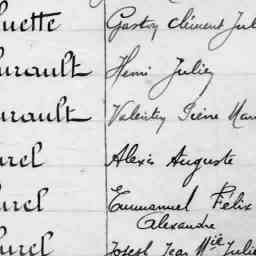 uette Gaston Clément Jul
urault Henri Juliez
urault Valentin Pierre Mar
urel Alexis Auguste
urel Emmanuel Félix
Alexandre
urel Joseph Jean Mie Julie